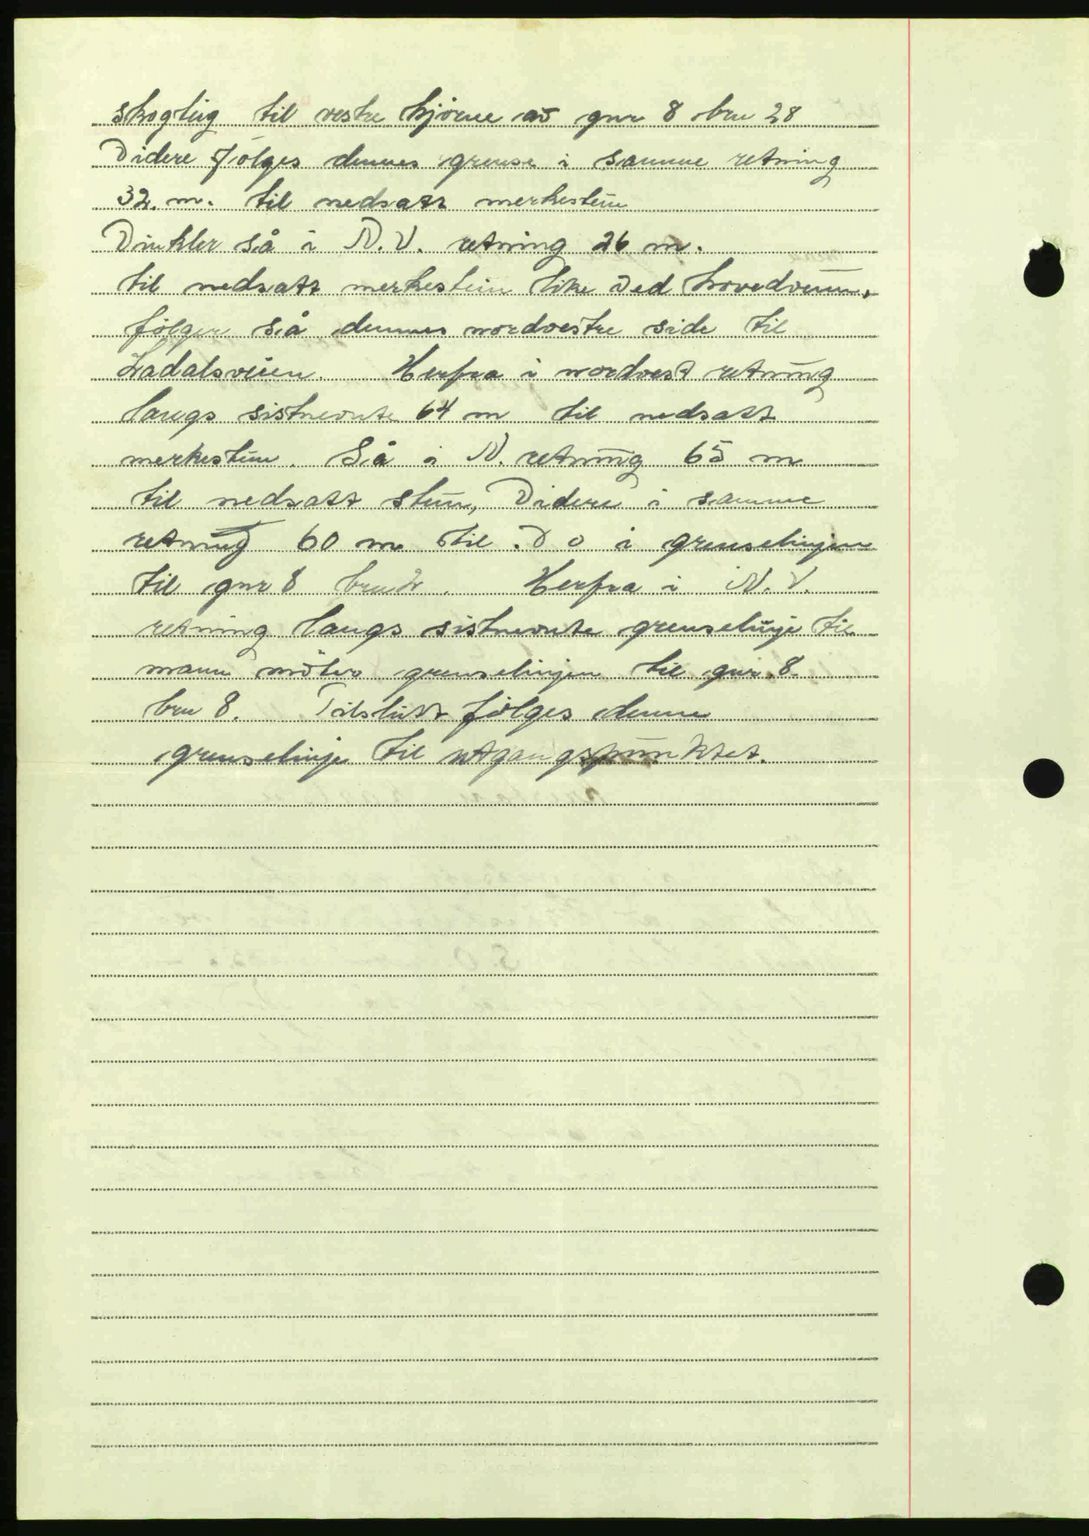 skogteig til vestre hjörne av gnr 8 bnr 28
Videre følges dennes grense i samme retning
32. m. til nedsatt merkestein
Vinkler så i N.V. retning 26 m.
til nedsatt merkestein like ved hovedveien,
følger så dennes nordvestre side til
Ladalsveien. Herfra i nordvest retning
langs sistnevnte 64 m til nedsatt
merkestein. Så i N. retning 65 m
til nedsatt stein, Videre i samme
retning 60 m til . D o i grenselinjen
til gnr 8 Herfra i N.V.
retning langs sistnevnte grenselinje til
mann möter grenselinjen til gnr. 8.
bnr 8. Tilslutt følges denne
grenselinje til utgangspunktet.